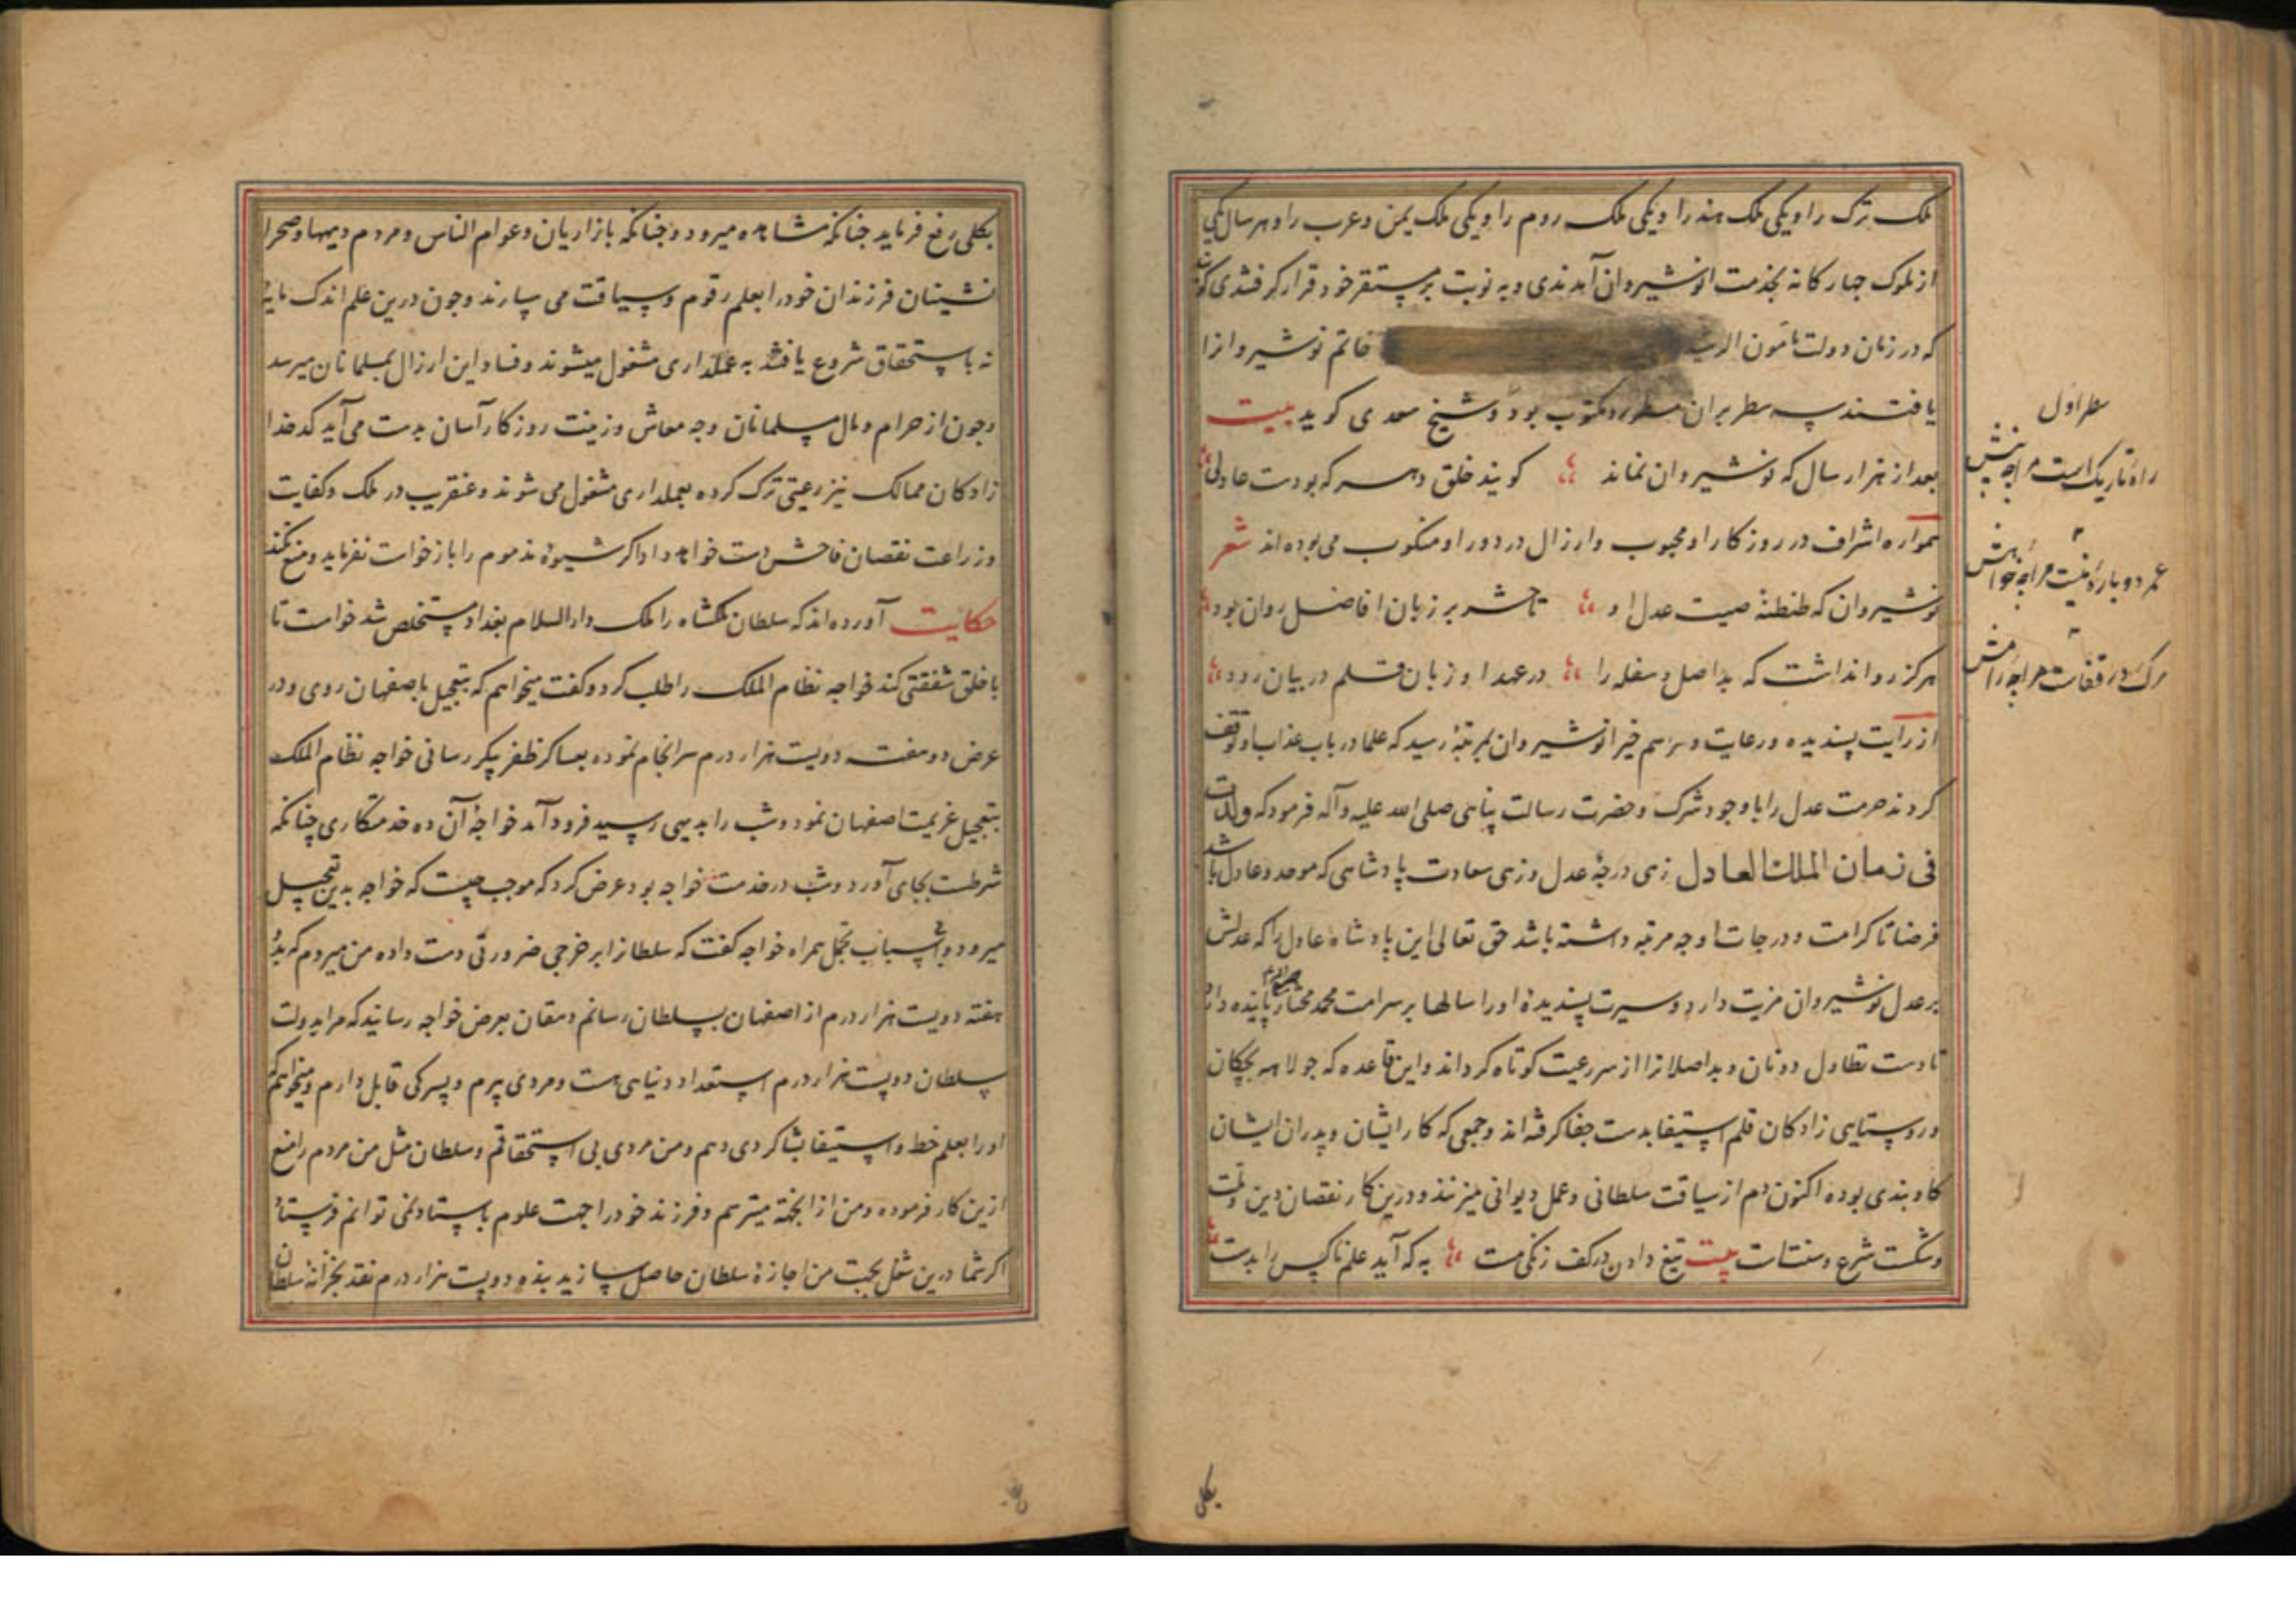 ملک ترک را و یکی ملک هند را و یکی ملک روم را و یکی ملک یمن و عرب را و هر سال یکی
از ملوک چهارکانه بخدمت انوشیروان آمدندی و به نوبت بر مستقر خود قرار گرفتندی
که در زمان دولت مأمون خاتم نوشیروانرا
یافتند سه سطر بران مکتوب بود و شیخ سعدی کوید بیت
بعد از هزار سال که نوشیروان نماند کویند خلق دهر که بودست عادلی
همواره اشراف در روزکار او محبوب و ارزال در دور او منکوب می بوده اند شعر
نوشیروان که طنطنهٔ صیت عدل او تا حشر بر زبان افاضل روان بود
هرکز روا نداشت که بداصل و سفله را در عهد او زبان قلم در بیان رود
از رایت پسندیده و رعایت و مراسم خیر انوشیروان بمرتبهٔ رسید که علما در باب عذاب او توقف
کردند حرمت عدل را با وجود شرک و حضرت رسالت پناهی صلی الله علیه و آله فرمود که ولدت
فی زمان الملک العادل زهی درجهٔ عدل و زهی سعادت پادشاهی که موحد و عادل باشد
فرضا تا کرامت و درجات او چه مرتبه داشته باشد حق تعالی این پادشاه عادل را که عدلش
بر عدل نوشیروان مزیت دارد و سیرت پسندیدهٔ او را سالها بر سر امت محمد مختار پاینده دارد
تا دست تطاول دونان و بداصلانرا از سر رعیت کوتاه کرداند و این قاعده که جولاهه بچکان
و روستایی زادکان قلم استیفا بدست جفا کرفته اند و جمعی که کار ایشان و پدران ایشان
کاوبندی بوده اکنون دم از سیاقت سلطانی و عمل دیوانی میزنند و درین کار نقصان دین و ملت
و شکست شرع و سنتست بیت تیغ دادن در کف زنکی مست به که آید علم ناکس را بدست
سطر اول
راه تاریک است مرا چه بینش
عمر دوباره نیست مرا چه خواهش
مرک در قفاست مرا چه رامش
بکلی
بکلی رفع فرماید چنانکه مشاهده میرود و چنانکه بازاریان و عوام الناس و مردم دیهها و صحرا
نشینان فرزندان خود را بعلم رقوم و سیاقت می سپارند و چون درین علم اندک مایهٔ
نه باستحقاق شروع یافتند به عملداری مشغول میشوند و فساد این ارزال بمسلمانان میرسد
و چون از حرام و مال مسلمانان وجه معاش و زینت روزکار آسان بدست می آید کدخدا
زادکان ممالک نیز رعیتی ترک کرده بعملداری مشغول می شوند و عنقریب در ملک و کفایت
و زراعت نقصان فاحش دست خواهد داد اکر شیوهٔ مذموم را بازخواست نفرماید و منع نکند
حکایت آورده اند که سلطان ملکشاه را ملک دارالسلام بغداد مستخلص شد خواست تا
با خلق شفقتی کند خواجه نظام الملک را طلب کرد و کفت میخواهم که بتعجیل باصفهان روی و در
عرض دو هفته دویست هزار درم سرانجام نموده بعساکر ظفر پیکر رسانی خواجه نظام الملک
بتعجیل عزیمت اصفهان نمود و شب را بدیهی رسید فرود آمد خواجهٔ آن ده خدمتکاری چنانکه
شرطست بجای آورد و شب در خدمت خواجه بود عرض کرد که موجب چیست که خواجه بدین تعجیل
میرود و اسباب تجمل همراه خواجه کفت که سلطانرا بر خرجی ضرورتی دست داده من میروم که بدو
هفته دویست هزار درم از اصفهان بسلطان رسانم دهقان بعرض خواجه رسانید که مرا بدولت
سلطان دویست هزار درم استعداد دنیاهی هست و مردی پیرم و پسرکی قابل دارم و میخواهم که
او را بعلم خط و استیفا بشاکردی دهم و من مردی بی استحقاقم و سلطان مثل من مردم را منع
ازین کار فرموده و من از آنجهته میترسم و فرزند خود را جهت علوم باستاد نمی توانم فرستاد
اکر شما درین شغل بجهت من اجازهٔ سلطان حاصل سازید بنده دویست هزار درم نقد بخزانهٔ سلطان